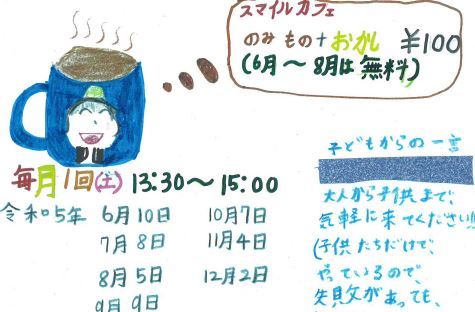 スマイルカフェ
のみもの+おかし ¥100
(6月〜8月は無料)
毎月1回(土) 13:30〜15:00
令和5年 6月10日 10月7日
7月8日 11月4日
8月5日 12月2日
9月9日
子どもからの一言
大人から子供まで、
気軽に来てください!!
(子供たちだけで、
やっているので、
失敗があっても、